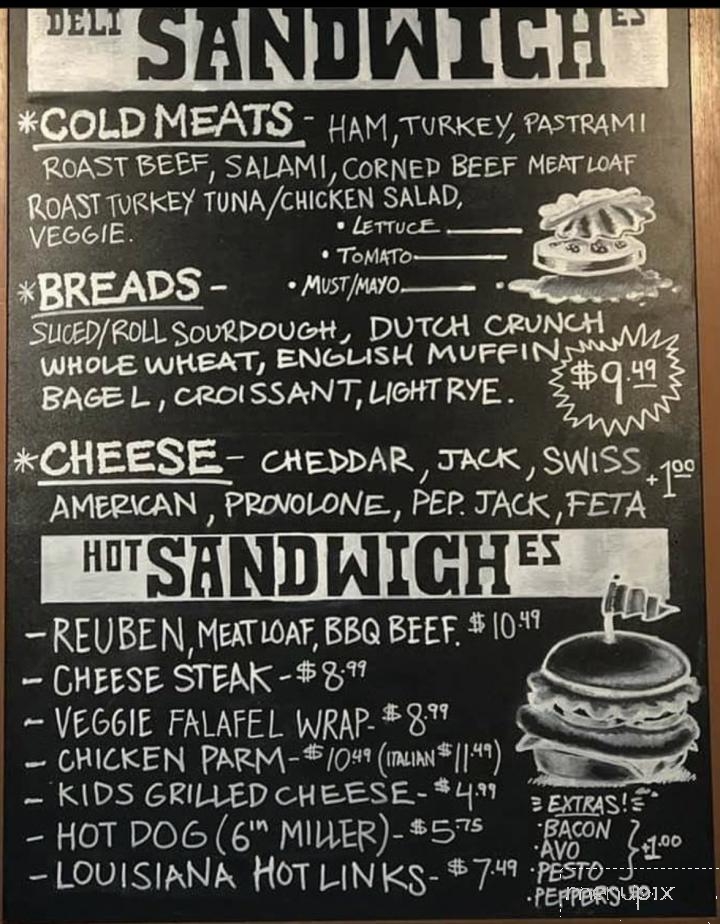 DELI SANDWICHES
*COLD MEATS - HAM, TURKEY, PASTRAMI
ROAST BEEF, SALAMI, CORNED BEEF MEAT LOAF
ROAST TURKEY TUNA/CHICKEN SALAD,
VEGGIE.
• LETTUCE
• TOMATO
• MUST/MAYO
*BREADS -
SLICED/ROLL SOURDOUGH, DUTCH CRUNCH
WHOLE WHEAT, ENGLISH MUFFIN,
BAGEL, CROISSANT, LIGHT RYE.
$9.49
*CHEESE - CHEDDAR, JACK, SWISS
AMERICAN, PROVOLONE, PEP. JACK, FETA
+1.00
HOT SANDWICHES
- REUBEN, MEATLOAF, BBQ BEEF. $10.49
- CHEESE STEAK - $8.99
- VEGGIE FALAFEL WRAP - $8.99
- CHICKEN PARM - $10.49 (ITALIAN $11.49)
- KIDS GRILLED CHEESE - $4.99
- HOT DOG (6in MILLER) - $5.75
- LOUISIANA HOT LINKS - $7.49
EXTRAS!
• BACON
• AVO
• PESTO
+1.00
• PEPPERS
menupix